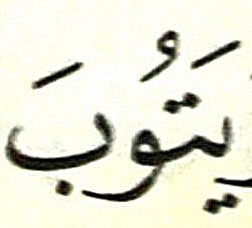 يَتُوبَ